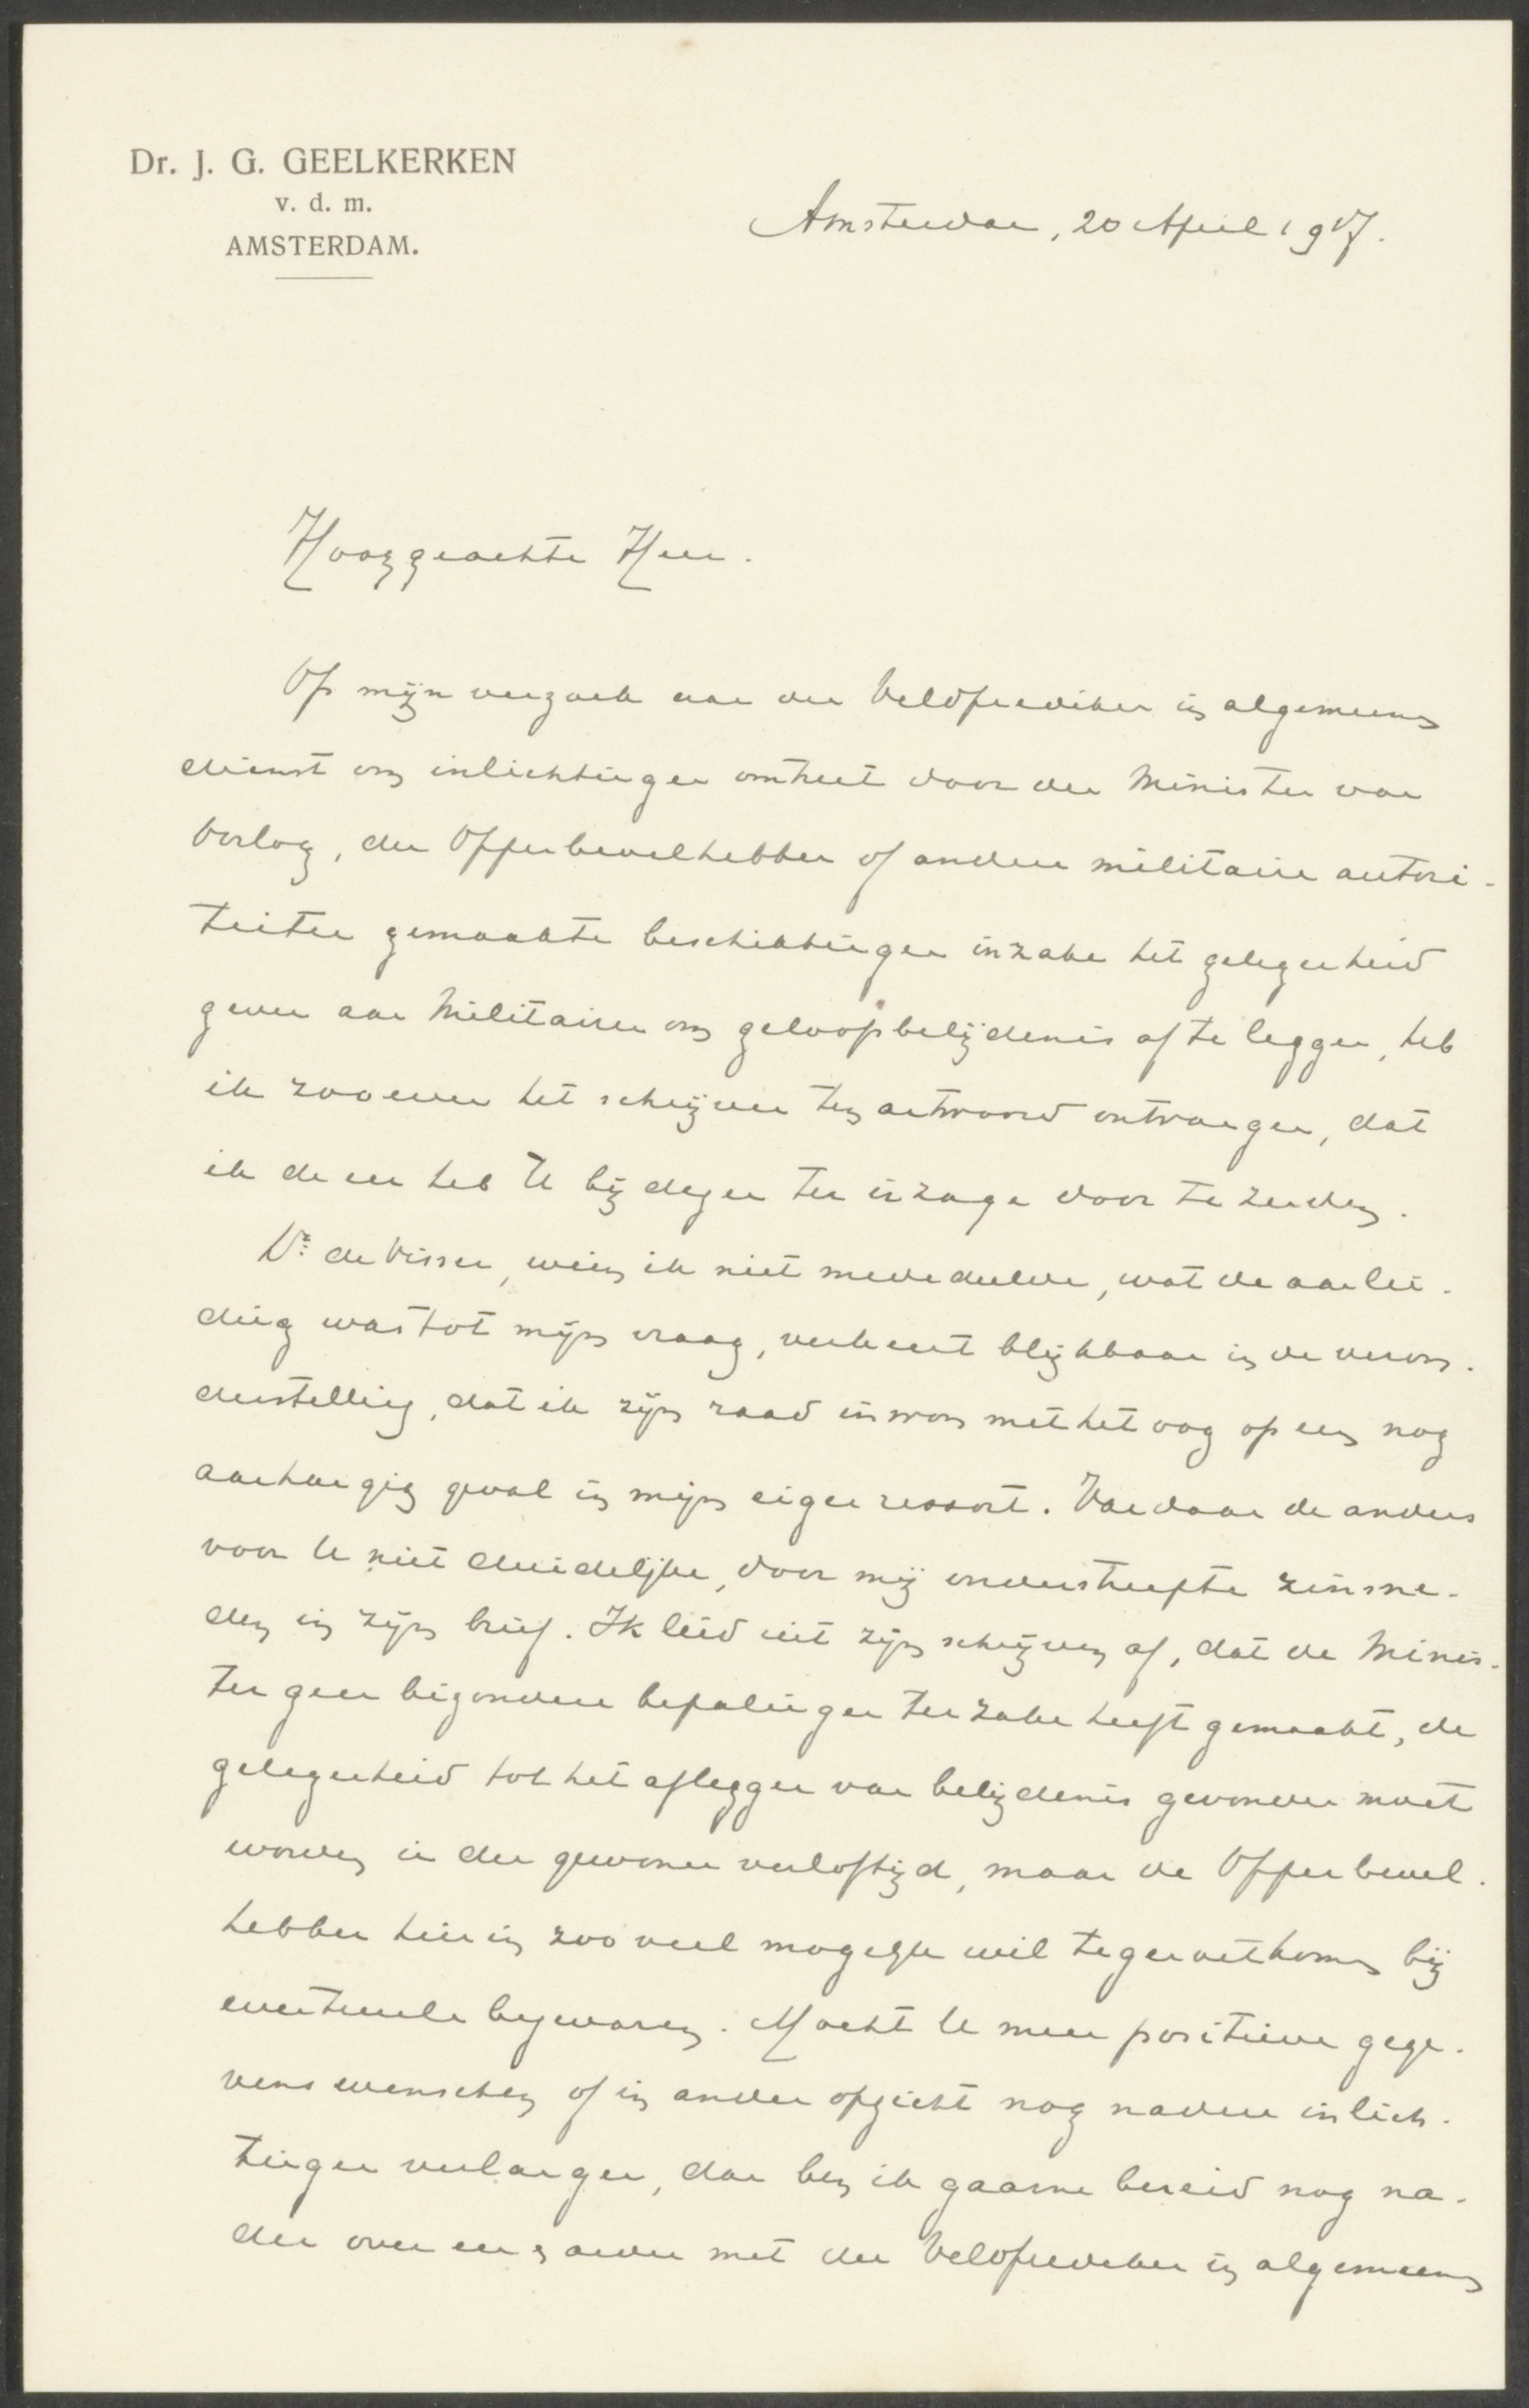 Dr. J. G. GEELKERKEN
v. d. m.
AMSTERDAM.
Amsterdam, 20 April 1917.
Hooggeachte Heer.
Op mijn verzoek aan den Veldprediker in algemeenen
dienst om inlichtingen omtrent door den Minister van
Oorlog, den Opperbevelhebber of andere militaire autori-
teiten gemaakte beschikkingen inzake het gelegenheid
geven aan Militairen om geloofsbelijdenis af te leggen, heb
ik zooeven het schrijven ten antwoord ontvangen, dat
ik de eer heb U bij dezen ter inzage door te zenden.
Dr. de Visser, wien ik niet mededeelde, wat de aanlei-
ding was tot mijn vraag, verkeert blijkbaar in de veron-
derstelling, dat ik zijn raad inwon met het oog op een nog
aanhangig geval in mijn eigen ressort. Vandaar de anders
voor U niet duidelijke, door mij onderstreepte zinsne-
den in zijn brief. Ik leid uit zijn schrijven af, dat de Minis-
ter geen bizondere bepalingen ter zake heeft gemaakt, de
gelegenheid tot het afleggen van belijdenis gevonden moet
worden in den gewonen verloftijd, maar de Opperbevel-
hebber hierin zooveel mogelijk wil tegemoetkomen bij
eventueele bezwaren. Mocht U meer positieve gege-
vens wenschen of in ander opzicht nog nadere inlich-
tingen verlangen, dan ben ik gaarne bereid nog na-
der over een en ander met den Veldprediker in algemeenen